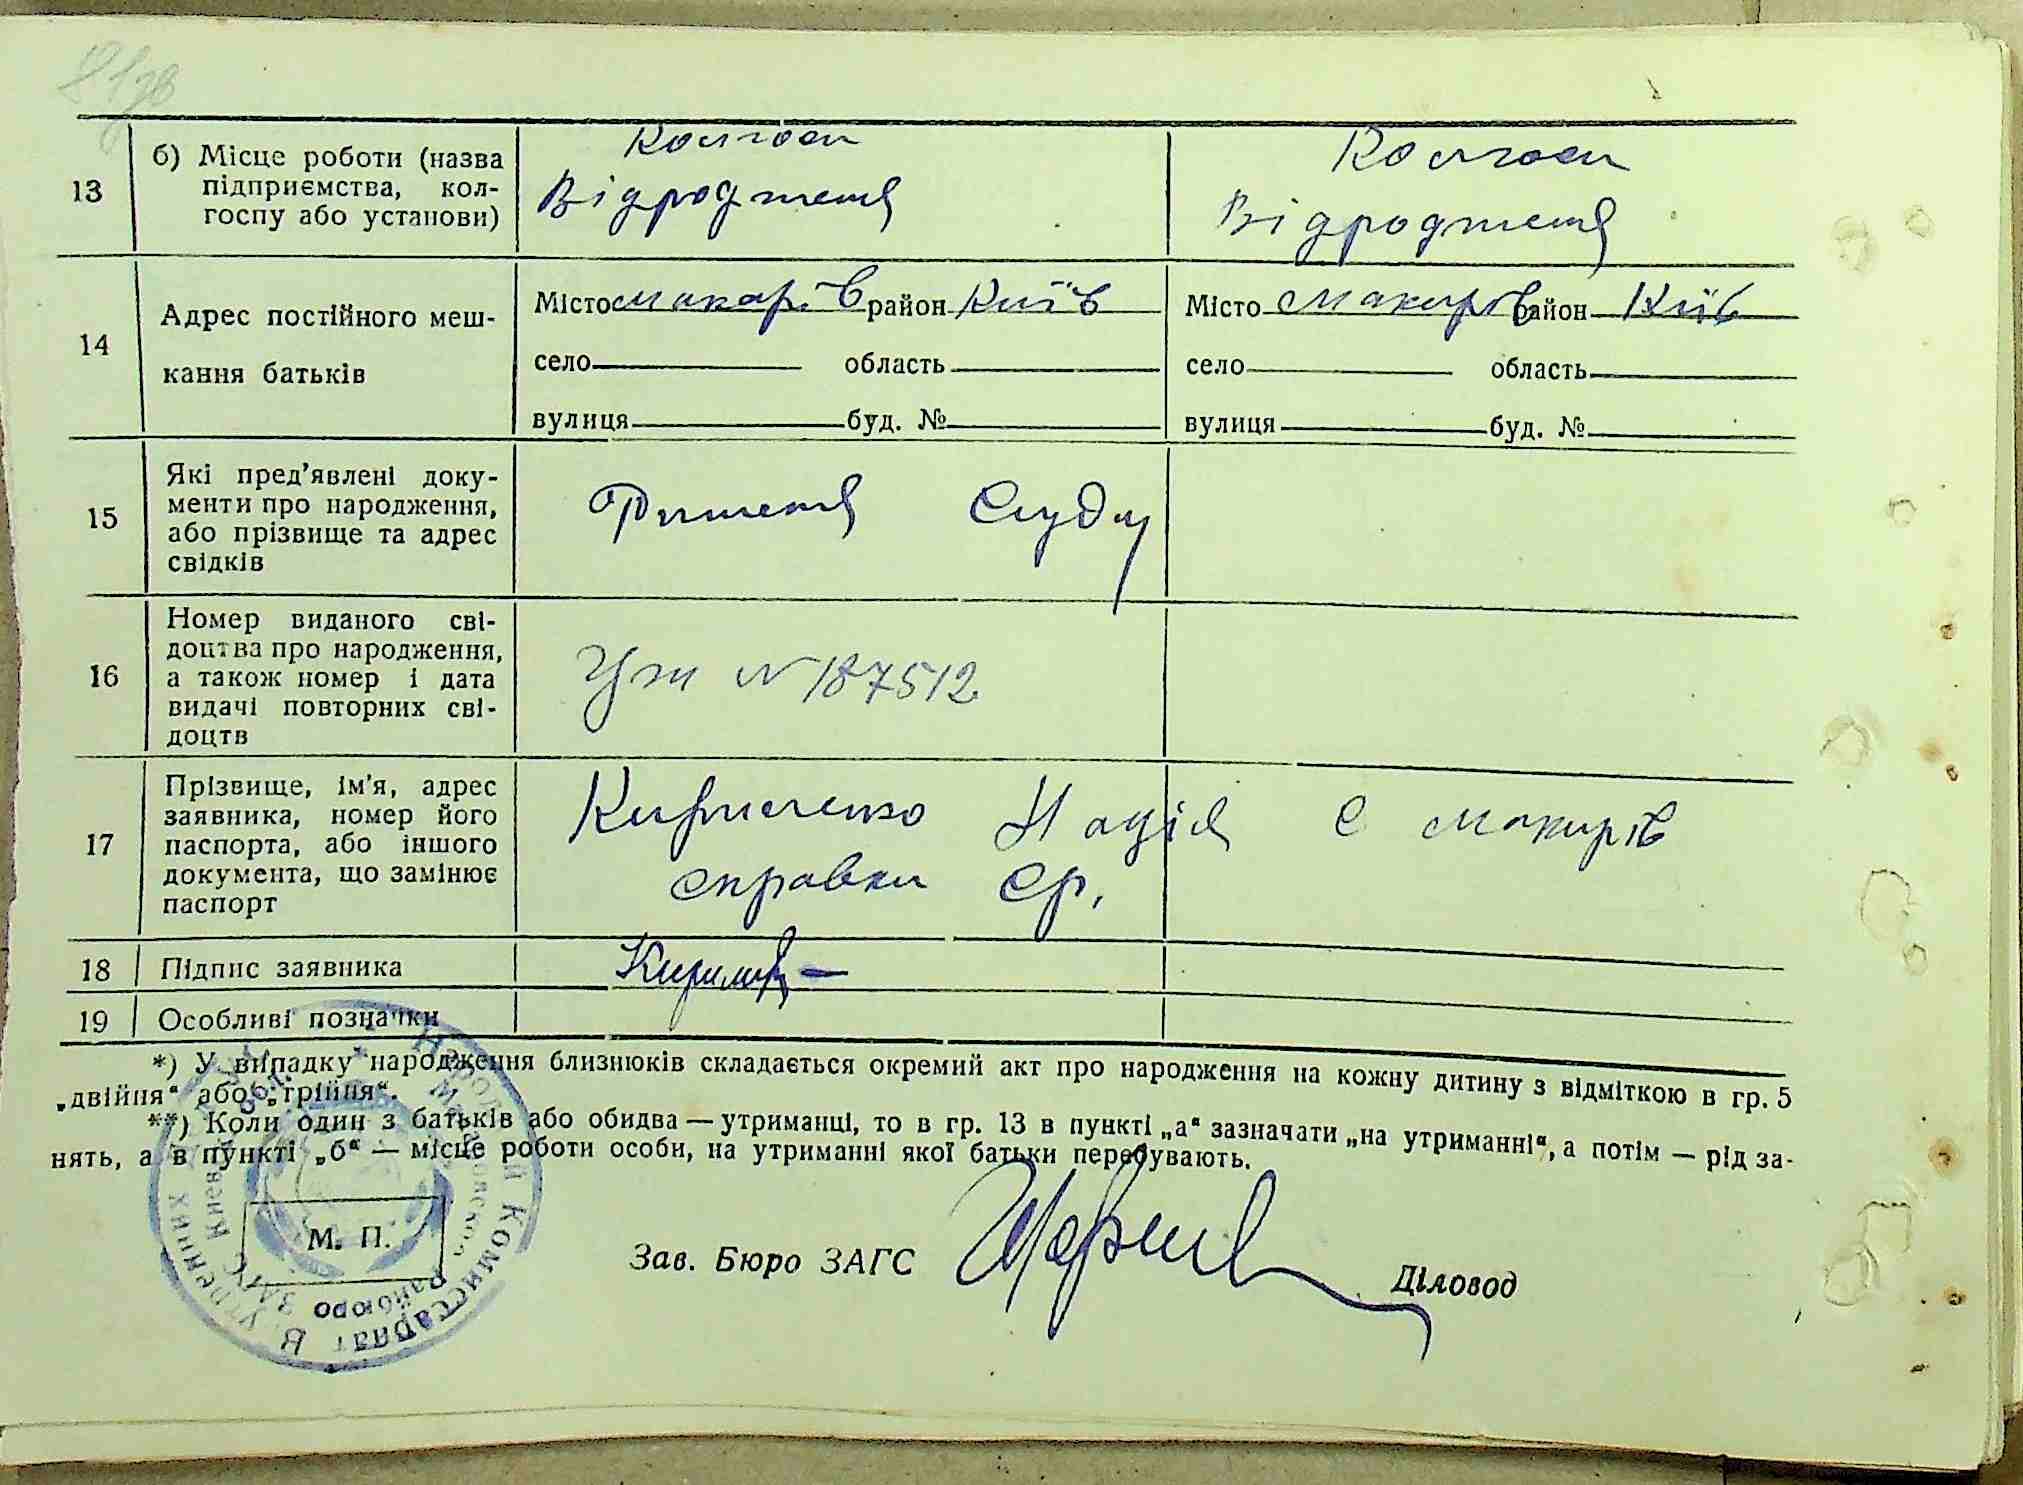 81зв
13 б) Місце роботи (назва
підприємства, кол-
госпу або установи)
Колгосп
Відродження
Колгосп
Відродження
14 Адрес постійного меш-
кання батьків
Місто Макарів район Київ
село область
вулиця буд. №
Місто Макарів район Київ
село область
вулиця буд. №
15 Які пред'явлені доку-
менти про народження,
або прізвище та адрес
свідків
Рішення Суду
16 Номер виданого сві-
доцтва про народження,
а також номер і дата
видачі повторних сві-
доцтв
N 187512
17 Прізвище, ім'я, адрес
заявника, номер його
паспорта, або іншого
документа, що замінює
паспорт
Кириленко Надія с Макарів
справка ср.
18 Підпис заявника
19 Особливі позначки
*) У випадку народження близнюків складається окремий акт про народження на кожну дитину з відміткою в гр. 5
„двійня“ або „трійня“.
**) Коли один з батьків або обидва — утриманці, то в гр. 13 в пункті „а“ зазначати „на утриманні“, а потім — рід за-
нять, а в пункті „б“ — місце роботи особи, на утриманні якої батьки перебувають.
М. П.
Зав. Бюро ЗАГС
Діловод
Народный Комиссариат Внутренних
Макаровское Райбюро ЗАГС Киев. обл.